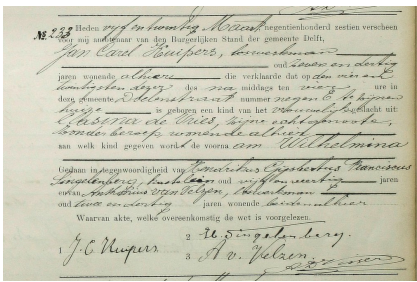 No. 233 Heden vijf en twintig Maart negentienhonderd zestien verscheen
voor mij ambtenaar van den Burgerlijken Stand der gemeente Delft,
Jan Carel Kuipers,
oud zes en dertig
jaren wonende alhier die verklaarde dat op den vier en
twintigsten dezer des na middags te vier ure in
deze gemeente Doelenstraat nummer negen te zijnen
huize is geboren een kind van het vrouwelijk geslacht uit:
Casina de Vries, zijne echtgenoote,
zonder beroep wonende alhier
aan welk kind gegeven wordt de voornaam Wilhelmina
Gedaan in tegenwoordigheid van Hendrikus Franciscus
Singelenberg, oud jaren
en van Antonius van Velzen,
oud twee en dertig jaren wonende beiden alhier
Waarvan akte, welke overeenkomstig de wet is voorgelezen.
1 J.C. Kuipers 2 H. Singelenberg.
3 A v. Velzen